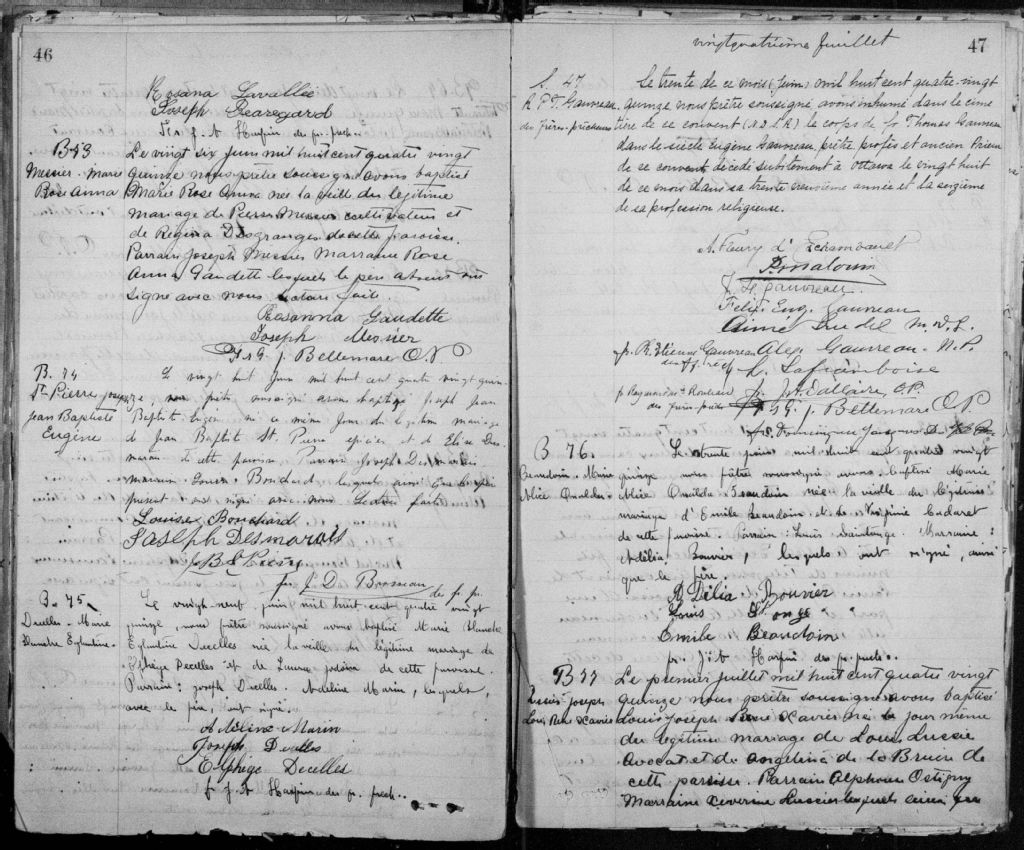 46
Rosana Lavallée
Joseph Beauregard
fr. J. A. des fr. prech.
B 73
Messier - Marie
Rose Anna
Le vingt six Juin mil huit cent quatre vingt
quinze nous prêtre soussigné avons baptisé
Marie Rose Anna née la veille du légitime
mariage de Pierre Messier cultivateur et
de Regina Desgranges de cette paroisse.
Parrain Joseph Messier Marraine Rose
Anna Gaudette lesquels le père absent ont
signé avec nous Lecture faite.
Rosanna Gaudette
Joseph Messier
J. Bellemare O.P
B. 74
St-Pierre Joseph
Jean Baptiste
Eugène
Le vingt huit Juin mil huit cent quatre vingt quin-
ze, nous prêtre soussigné avons baptisé Joseph Jean
Baptiste Eugène né ce même jour du légitime mariage
de Jean Baptiste St. Pierre épicier et de Elise Des-
marais de cette paroisse. Parrain Joseph Desmarais
marraine Louise Bouchard lesquels ainsi que le père
présent ont signé avec nous Lecture faite
Louise Bouchard
Joseph Desmarais
J. B. St Pierre
fr. J. D. Brosseau des fr. pr.
B. 75
Decelles - Marie
Blanche Eglantine.
Le vingt-neuf juin mil huit-cent quatre vingt
quinze, nous prêtre soussigné avons baptisé Marie Blanche
Eglantine Decelles née la veille du légitime mariage de
Elphège Decelles et de Laura Jodoin de cette paroisse
Parrain: Joseph Decelles. Adeline Marin, lesquels,
avec le père, ont signé.
Adeline Marin
Joseph Decelles
Elphège Decelles
fr. J. A. des fr. prech..
47
vingt quatrième feuillet
S. 47
R. P. T. Gauvreau,
des frères-prêcheurs
Le trente de ce mois (Juin) mil huit cent quatre-vingt
quinze nous prêtre soussigné avons inhumé dans le cime
tière de ce couvent (N.D.L.R) le corps de fr Thomas Gauvreau
dans le siècle Eugène Gauvreau, prêtre profès et ancien Prieur
de ce couvent décédé subitement à Ottawa le vingt huit
de ce mois dans sa trente neuvième année et la seizième
de sa profession religieuse.
A. Fleury d'Eschambault
J. Gauvreau.
Felix Eug. Gauvreau
Aimé M.D.L.
fr. Rh. Etienne Gauvreau
des ff. prêch
Alex Gauvreau. N.P.
Laframboise
fr. Raymond M Rouleau
des frères-prêch
fr. Dallaire, O.P.
J. Bellemare O.P.
fr. Dominique Jacques
B 76.
Beaudoin, Marie
Alice Onelda.
Le trente juin mil-huit cent quatre vingt
quinze nous prêtre soussigné avons baptisé Marie
Alice Onilda Beaudoin née la veille du légitime
mariage d'Emile Beaudoin et de Virginie Cadaret
de cette paroisse. Parrain: Louis Saintonge. Marraine:
Adélia Bouvier, lesquels ont signé, ainsi
que le père.
A Délia Bouvier
Louis St onge
Emile Beaudoin
fr. J. A des fr. prech.
B 77
Lussier Joseph
Louis René Xavier
Le premier juillet mil huit cent quatre vingt
quinze nous prêtre soussigné avons baptisé
Louis Joseph René Xavier né le jour même
du légitime mariage de Louis Lussier
avocat et de Angelina de La Bruère de
cette paroisse. Parrain Alphonse Ostigny
Marraine Séverine Lussier lesquels ainsi que